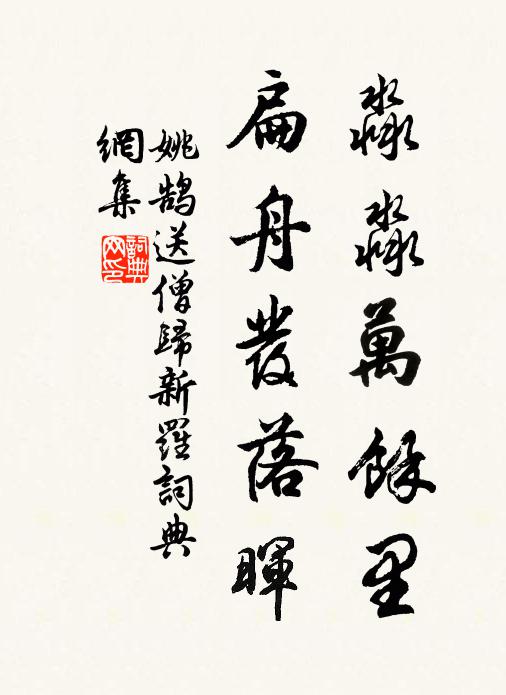 淼淼萬餘里
扁舟發落暉
姚鵠送僧歸新羅詞典
網集
詞典网印